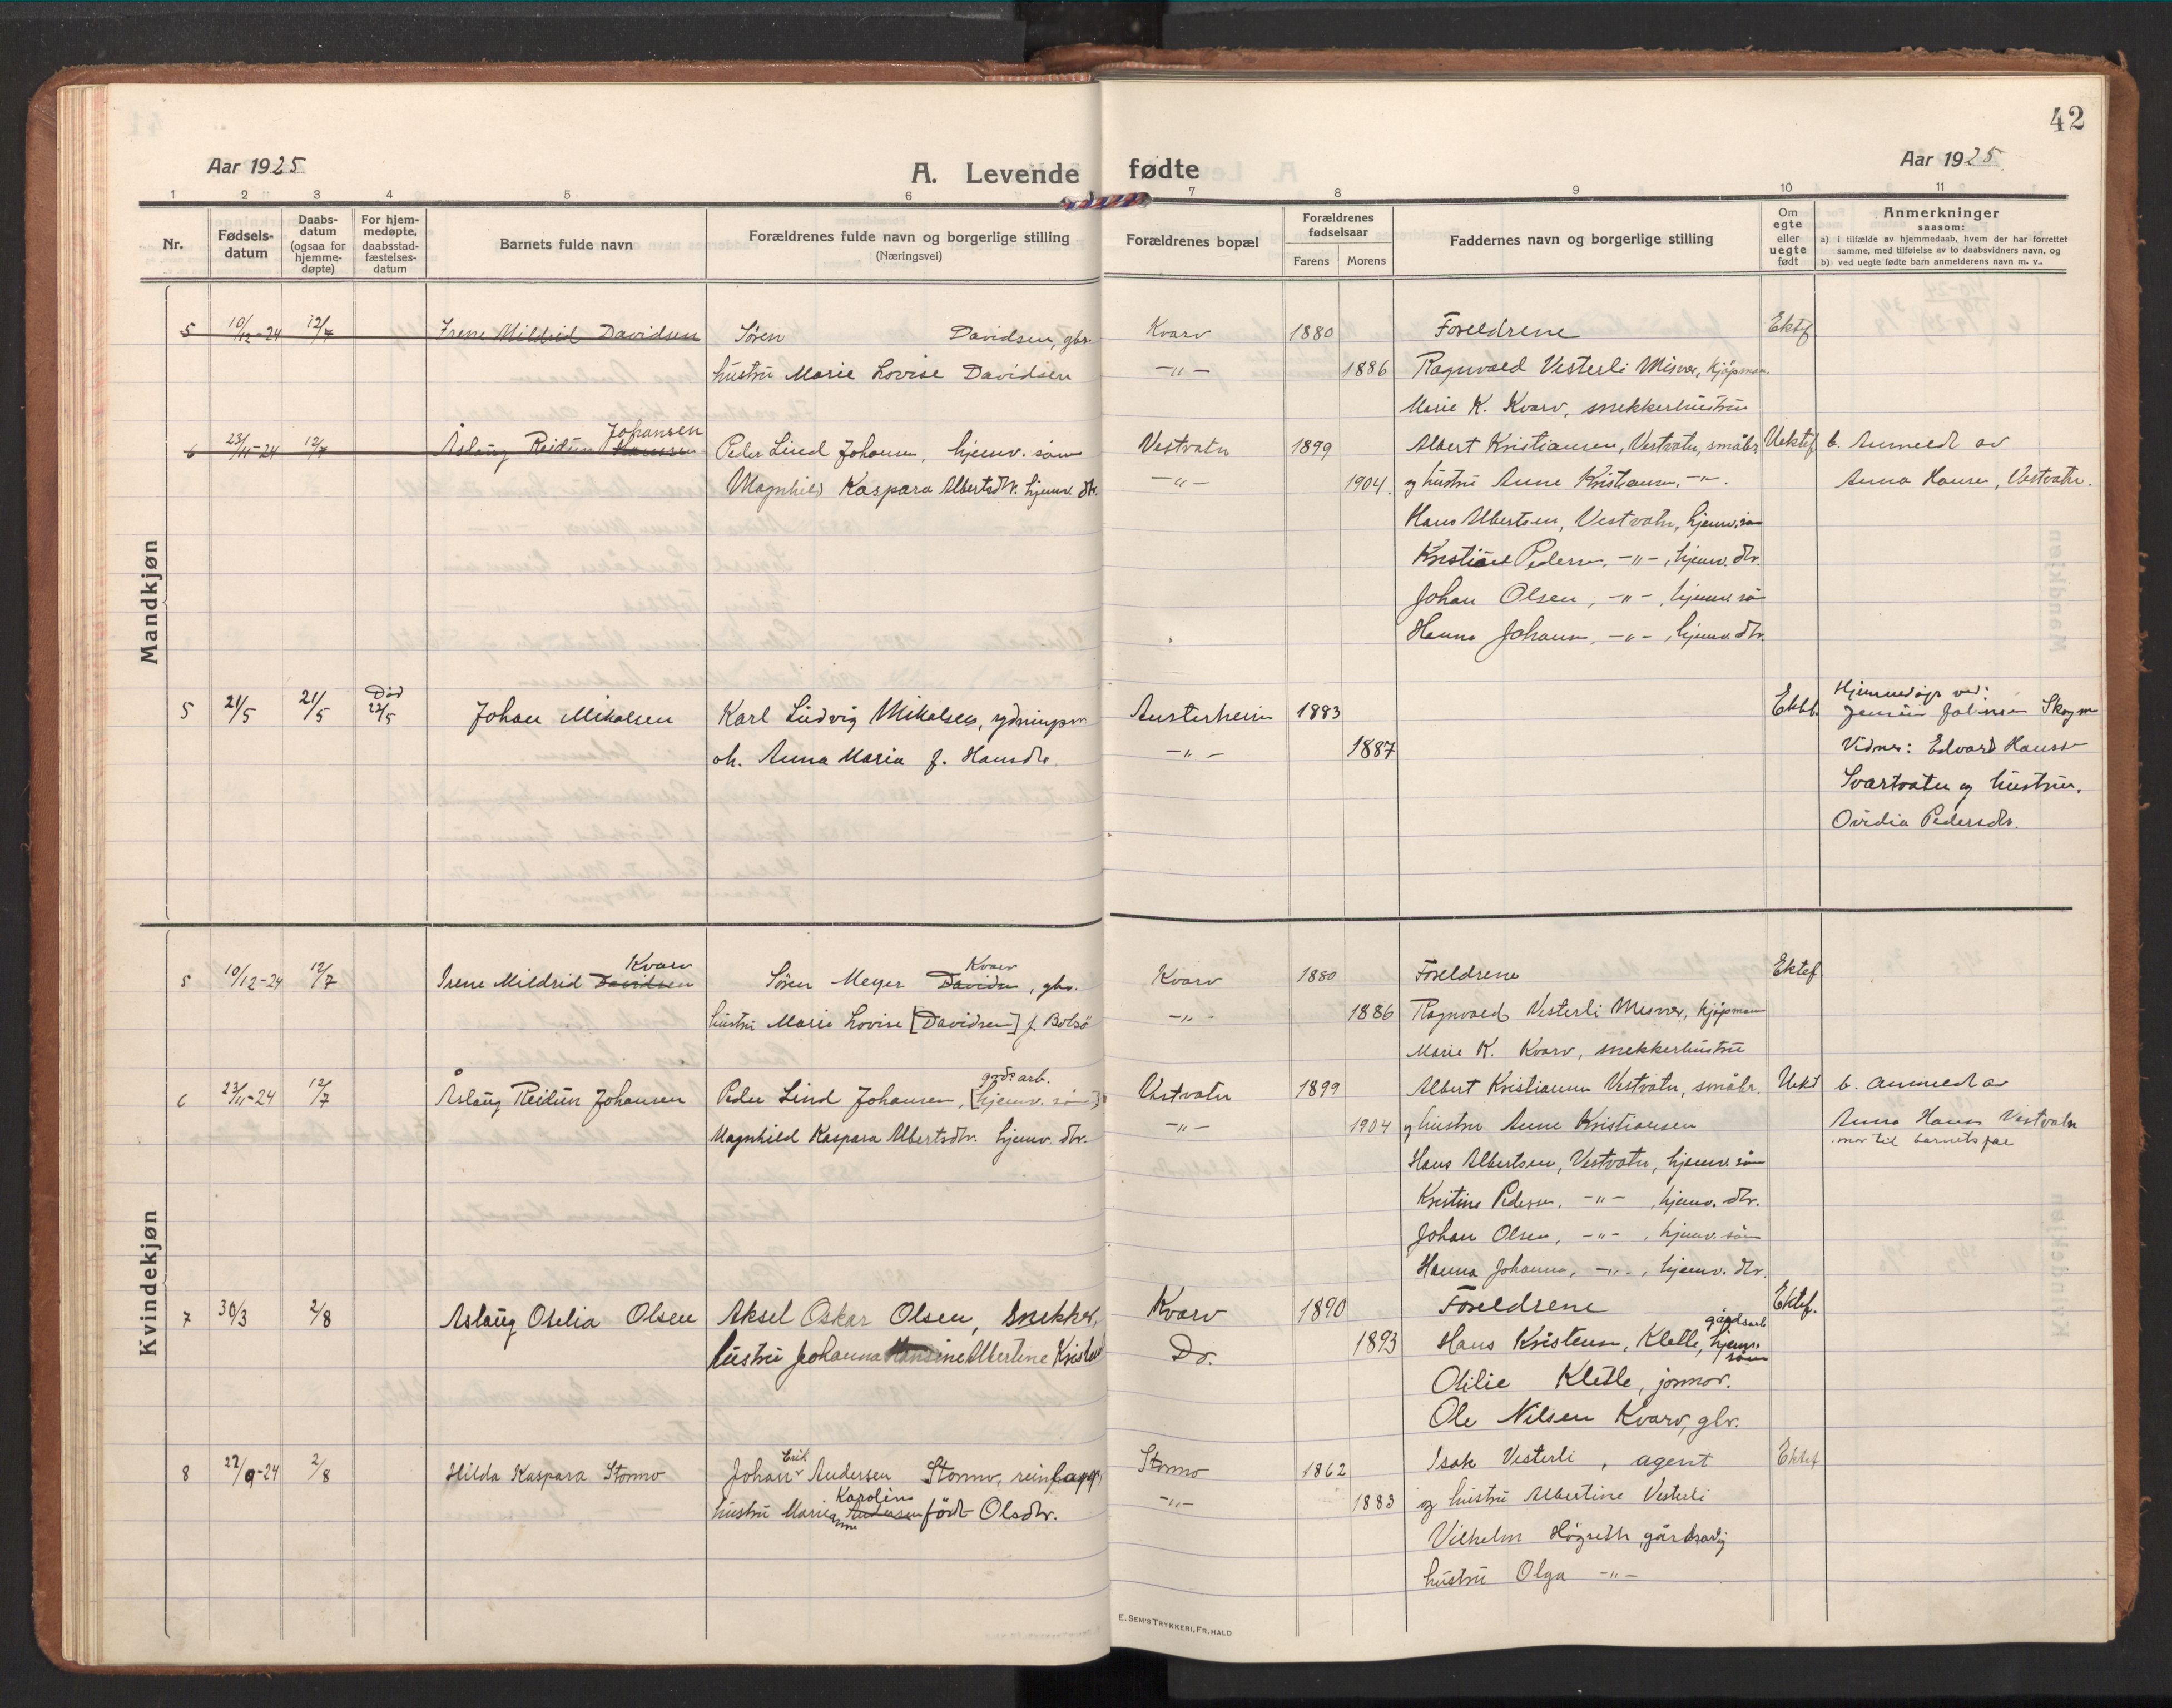 42
Aar 1925
A. Levende fødte
Aar 1925
1 2 3 4 5 6 7 8 9 10 11
Nr.
Fødsels-
datum
Daabs-
datum
(ogsaa for
hjemme-
døpte)
For hjem-
medøpte,
daabsstad-
fæstelses-
datum
Barnets fulde navn
Forældrenes fulde navn og borgerlige stilling
(Næringsvei)
Forældrenes bopæl
Forældrenes
fødselsaar
Farens Morens
Faddernes navn og borgerlige stilling
Om
egte
eller
uegte
født
Anmerkninger
saasom:
a) i tilfælde av hjemmedaab, hvem der har forrettet
samme, med tilføielse av to daabsvidners navn, og
b) ved uegte fødte barn anmelderens navn m. v..
Mandkjøn
5 10/12-24 12/7 Irene Mildrid Davidsen Søren Davidsen, gbr. Kvarv 1880 Foreldrene Ektef
hustru Marie Lovise Davidsen -"- 1886 Ragnvald Vesterli Misvær, kjøpman
Marie K. Kvarv, snekkerhustru
Johansen
6 23/11-24 12/7 Åslaug Reidun Hansen Peder Lind Johansen, hjemv. søn Vestvatn 1899 Albert Kristiansen, Vestvatn, småbr. Uektef b. Anmeldt av
Magnhild Kaspara Albertsdtr. hjemv. dtr. -"- 1904 og hustru Anne Kristiansen, -"-. Anna Hansen, Vestvatn.
Hans Albertsen, Vestvatn, hjemv. søn
Kristine Pedersen, -"-, hjemv. dtr.
Johan Olsen, -"-, hjemv. søn
Hanna Johansen, -"-, hjemv. dtr.
5 21/5 21/5 Død 22/5 Johan Mikalsen Karl Ludvig Mikalsen, rydningsm Austerheim 1883 Ektef. Hjemmedøpt ved:
Johansen Skogmo
oh. Anna Maria f. Hansdtr. -"- 1887 Vidner: Edvard Hansen
Svartvatn og hustru.
Ovidia Pedersdtr.
Kvindekjøn
Kvarv Kvarv
5 10/12-24 12/7 Irene Mildrid Davidsen Søren Meyer Davidsen, gbr. Kvarv 1880 Foreldrene Ektef
hustru Marie Lovise [Davidsen] f. Bolsø -"- 1886 Ragnvald Vesterli Misvær, kjøpman
Marie K. Kvarv, snekkerhustru
gårdsarb.
6 23/11-24 12/7 Åslaug Reidun Johansen Peder Lind Johansen, [hjemv. søn] Vestvatn 1899 Albert Kristiansen Vestvatn, småbr. Uekt b. anmeldt av
Magnhild Kaspara Albertsdtr. hjemv. dtr. -"- 1904 og hustru Anne Kristiansen Anna Hansen Vestvatn
mor til barnets far
Hans Albertsen, Vestvatn, hjemv. søn
Kristine Pedersen, -"-, hjemv. dtr.
Johan Olsen, -"-, hjemv. søn
Hanna Johansen, -"-, hjemv. dtr.
7 30/3 2/8 Aslaug Otelia Olsen Aksel Oskar Olsen, snekker, Kvarv 1890 Foreldrene Ektef.
gårdsarb
hustru Johanna Hansine Albertine Do. 1893 Hans Kristensen, Kletle, hjemv. søn
Otilie Kletle, jormor.
Ole Nilsen Kvarv, gbr.
Erik
8 22/9-24 2/8 Hilda Kaspara Stormo Johan Andersen Stormo, reinlapp, Stormo 1862 Isak Vesterli, agent Ektef
Karoline
hustru Marie anne Andersen født Olsdtr. -"- 1883 og hustru Albertine Vesterli
Vilhelm Høgseth, gårdsarb
hustru Olga -"-
E. SEM'S TRYKKERI, FR.HALD